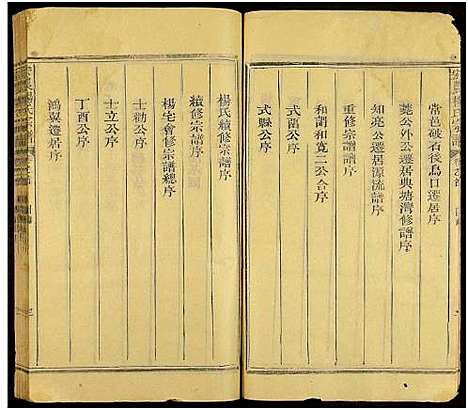 常邑破石後烏口遷居序
蒄公外公遷居典塘灣修譜序
知亮公遷居源流譜序
重修宗譜讀序
和韶和寬二公合序
式閭公序
式縣公序
楊氏續修宗譜序
續修宗譜序
楊宅會修宗譜總序
士勸公序
士立公序
丁酉公序
鴻翼遷居序